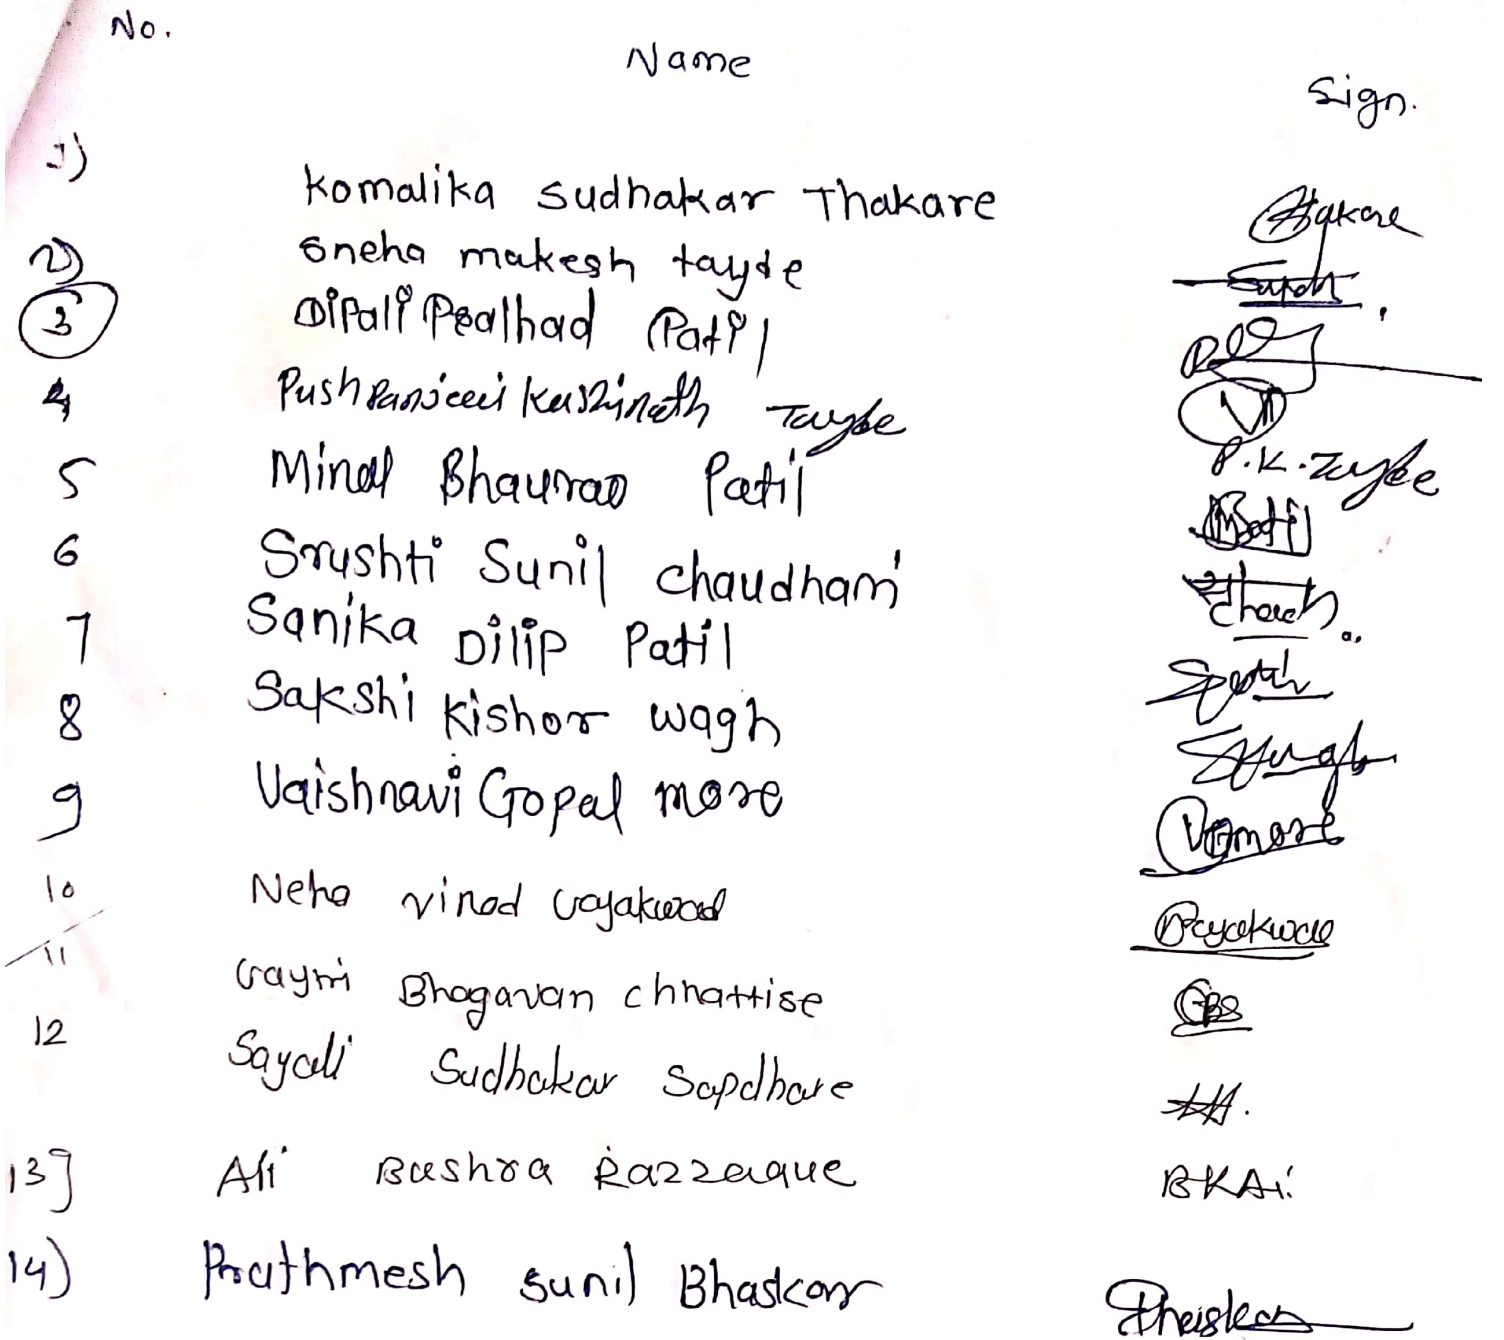 No. Name Sign.
1) Komalika Sudhakar Thakare
2) Sneha makesh tayde
3 Dipali Pralhad Patil
4 Kashinath Tayde P.K.Tayde
5 Minal Bhaurao Patil
6 Srushti Sunil chaudhari
7 Sanika Dilip Patil
8 Sakshi Kishor wagh
9 Vaishnavi Gopal more VGmore
10 Neha vinod Gayakwad Gayakwad
11 Gayri Bhagavan chhattise GBS
12 Sayali Sudhakar Sapdhare
13] Ali Bushra Razzaque
14) Prathmesh Sunil Bhaskar